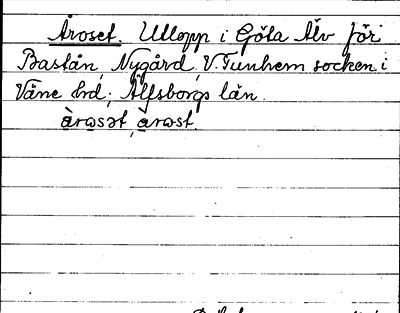 Åroset. Utlopp i Göta Älv för
Bastån, Nygård, V. Tunhem socken i
Väne hrd; Älfsborgs län.
àrωsət, àrωst.